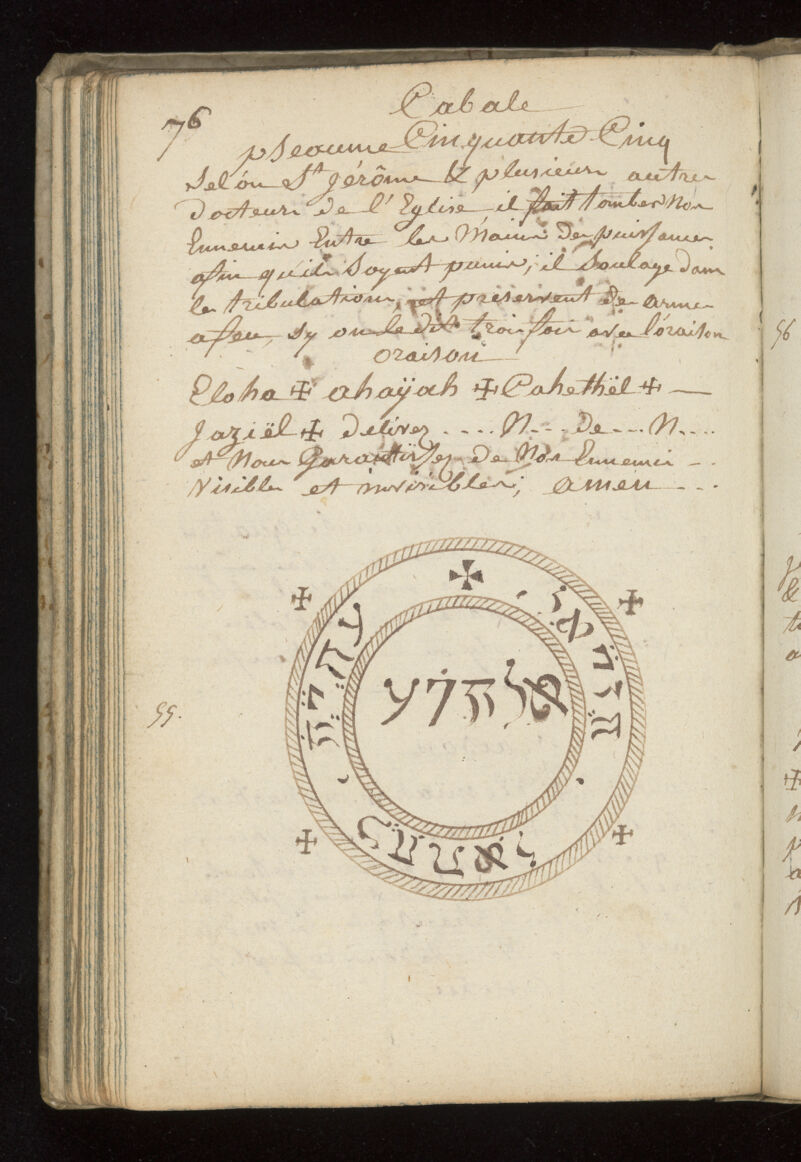 76
Cabale
pseaume Cinquante Cinq
Selon St Jérôme & plusieurs autres
docteurs de l'Eglise il fait tomber Nos
Ennemis Entre les Mains des puissances
afin qu'ils Soyent punis; il Soulage dans
les tribulations, et préservent des armes
a feu, sy on le dit trois fois avec l'oraison
oraison
Eloha ✠ ahaÿah ✠ Cahethël ✠ —
Jaziël ✠ delivrez .... N... de ... N....
et Nous Garantissez de Nos Ennemis ...
Visibles et invisibles; amen ...
55.
56